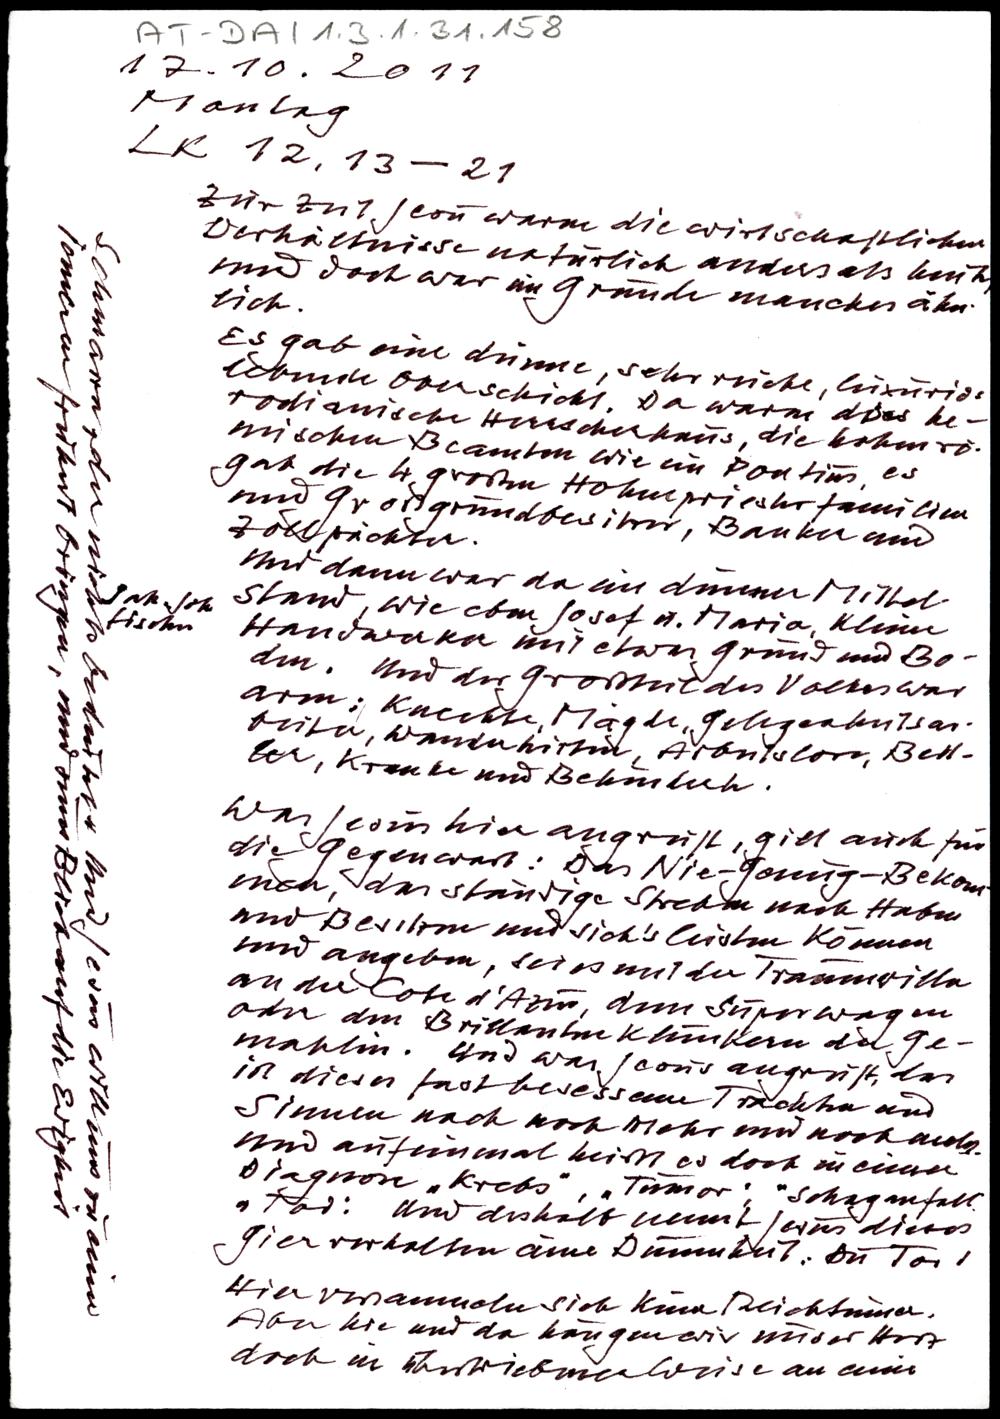 AT-DA| 1.3.1.31.158
17.10.2011
Montag
LK 12, 13 – 21
Zur Zeit Jesu waren die wirtschaftlichen
Verhältnisse natürlich anders als heute,
und doch war im Grunde manches ähn-
lich.
Es gab eine dünne, sehr reiche, luxuriös
lebende Oberschicht. Da waren das he-
rodianische Herrscherhaus, die hohen rö-
mischen Beamten wie ein Pontius, es
gab die 4 großen Hohepriesterfamilien
und Großgrundbesitzer, Banker und
Zollpächter.
Und dann war da ein dünner Mittel-
stand, wie eben Josef u. Maria, kleine
Handwerker mit etwas Grund und Bo-
den. Und der Großteil des Volkes war
arm: Knechte, Mägde, Gelegenheitsar-
beiter, Wanderhirten, Arbeitslose, Bett-
ler, Kranke und Behinderte.
Jak. Joh
Fischer
Was Jesus hier angreift, gilt auch für
die Gegenwart: Das Nie-Genug-Bekom-
men, das ständige Streben nach Haben
und Besitzen und sich's leisten Können
und angeben, sei es mit der Traumvilla
an der Cote d'Azur, dem Superwagen
oder den Brillanten Klunkern der Ge-
mahlin. Und was Jesus angreift, das
ist dieses fast besessene Trachten und
Sinnen nach noch Mehr und noch mehr.
Und auf einmal heißt es doch in einer
Diagnose „Krebs", „Tumor", "Schlaganfall"
„Tod". Und deshalb nennt Jesus dieses
Gierverhalten eine Dummheit. Du Tor!
Hier versammeln sich keine Reichtümer.
Aber hie und da hängen wir unser Herz
doch in übertriebener Weise an eine
Schmarrn, der nichts bedeutet. Und Jesus will uns zu einer
inneren Freiheit bringen, und unser Blick auf die Ewigkeit